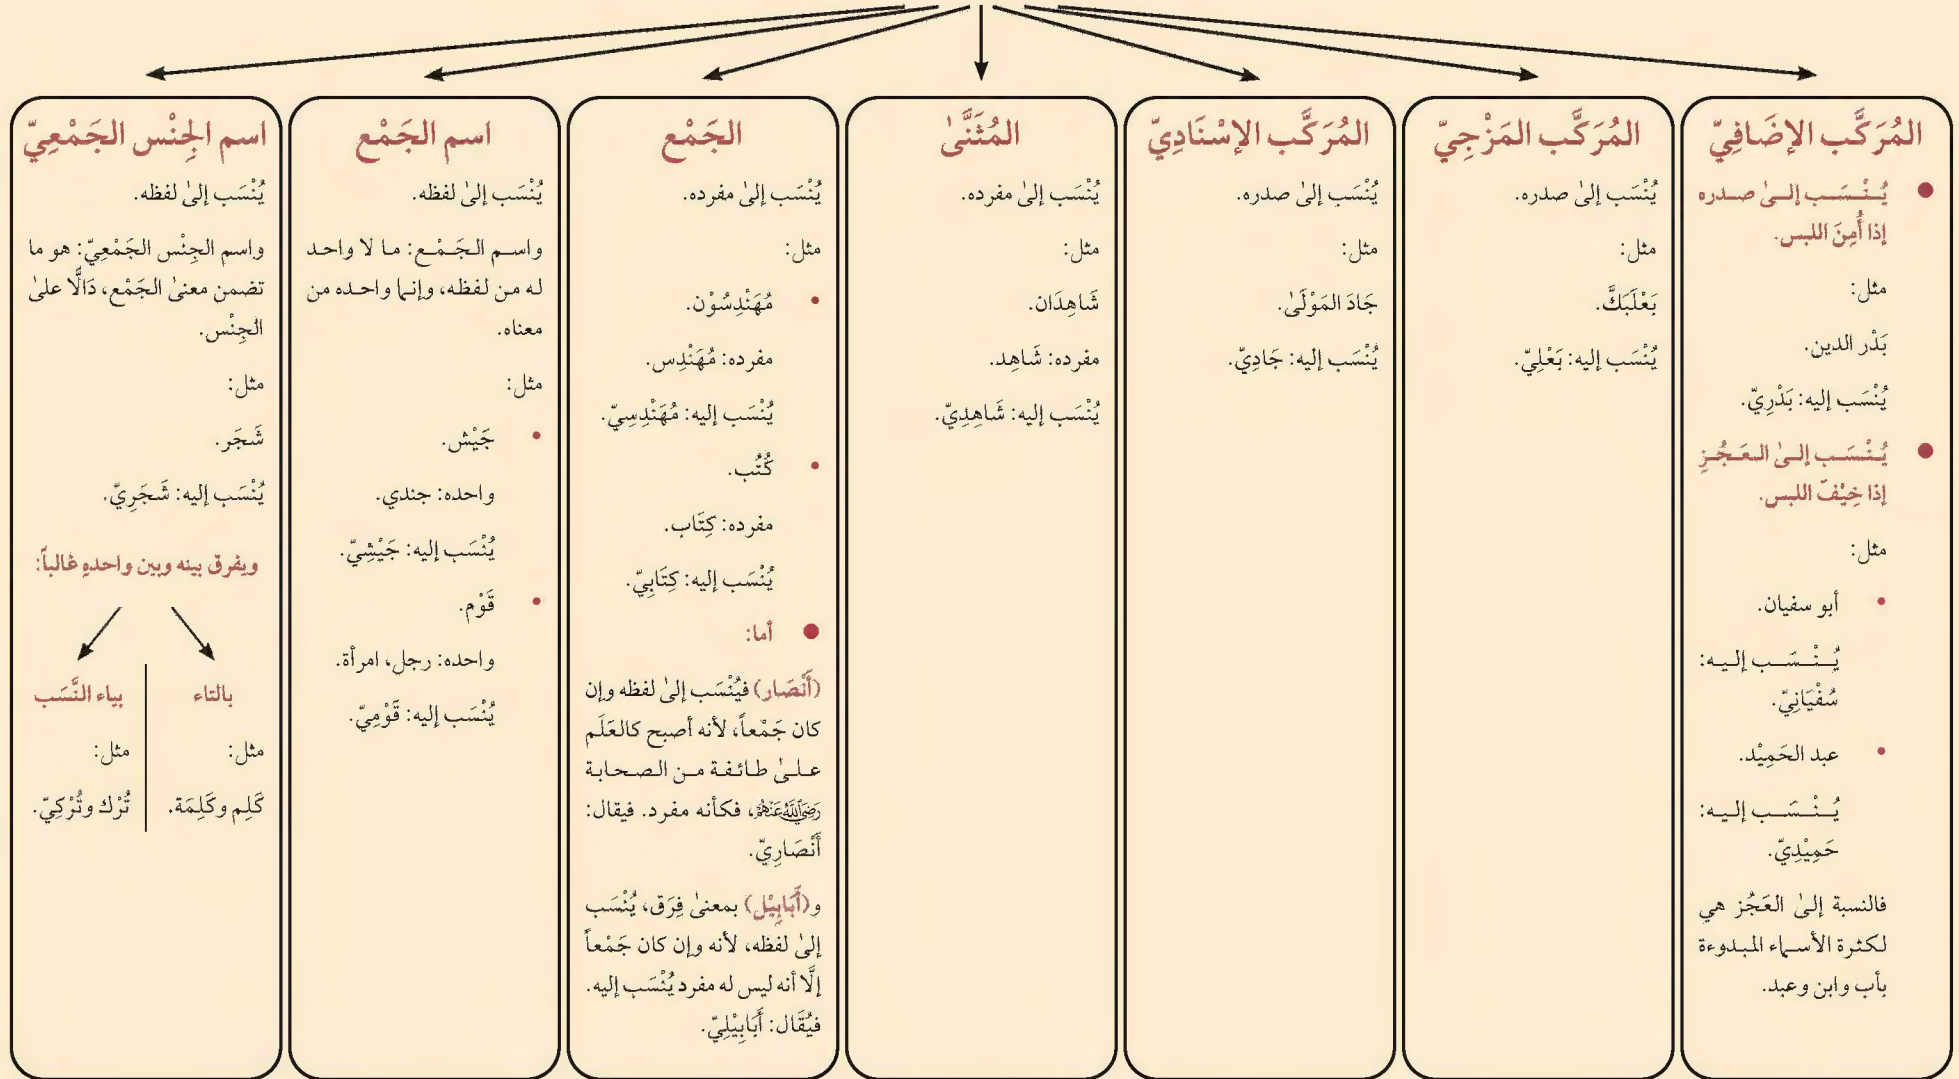 المُرَكَّب الإضَافِيّ
● يُـنْـسَـب إلــىٰ صـدره
إذا أُمِنَ اللبس.
مثل:
بَدْر الدين.
يُنْسَب إليه: بَدْرِيّ.
● يُـنْـسَـب إلـىٰ الـعَـجُـزِ
إذا خِيْفَ اللبس.
مثل:
• أبو سفيان.
يُـنْـسَـب إلـيـه:
سُفْيَانِيّ.
• عبد الحَمِيْد.
يُـنْـسَـب إلـيـه:
حَمِيْدِيّ.
فالنسبة إلىٰ العَجُز هي
لكثرة الأسماء المبدوءة
بأب وابن وعبد.
المُرَكَّب المَزْجِيّ
يُنْسَب إلىٰ صدره.
مثل:
بَعْلَبَكَّ.
يُنْسَب إليه: بَعْلِيّ.
المُرَكَّب الإسْنَادِيّ
يُنْسَب إلىٰ صدره.
مثل:
جَادَ المَوْلَىٰ.
يُنْسَب إليه: جَادِيّ.
المُثَنَّىٰ
يُنْسَب إلىٰ مفرده.
مثل:
شَاهِدَان.
مفرده: شَاهِد.
يُنْسَب إليه: شَاهِدِيّ.
الجَمْع
يُنْسَب إلىٰ مفرده.
مثل:
• مُهَنْدِسُوْن.
مفرده: مُهَنْدِس.
يُنْسَب إليه: مُهَنْدِسِيّ.
• كُتُب.
مفرده: كِتَاب.
يُنْسَب إليه: كِتَابِيّ.
● أما:
(أَنْصَار) فيُنْسَب إلىٰ لفظه وإن
كان جَمْعاً، لأنه أصبح كالعَلَم
عـلـىٰ طـائـفـة مـن الـصـحـابـة
رَضِيَ اللَّهُ عَنْهُمْ، فكأنه مفرد. فيقال:
أَنْصَارِيّ.
و(أَبَابِيْل) بمعنىٰ فِرَق، يُنْسَب
إلىٰ لفظه، لأنه وإن كان جَمْعاً
إلَّا أنه ليس له مفرد يُنْسَب إليه.
فيُقَال: أَبَابِيْلِيّ.
اسم الجَمْع
يُنْسَب إلىٰ لفظه.
واسـم الـجَـمْـع: مـا لا واحـد
له من لفظه، وإنما واحده من
معناه.
مثل:
• جَيْش.
واحده: جندي.
يُنْسَب إليه: جَيْشِيّ.
• قَوْم.
واحده: رجل، امرأة.
يُنْسَب إليه: قَوْمِيّ.
اسم الجِنْس الجَمْعِيّ
يُنْسَب إلىٰ لفظه.
واسم الجِنْس الجَمْعِيّ: هو ما
تضمن معنىٰ الجَمْع، دَالًّا علىٰ
الجِنْس.
مثل:
شَجَر.
يُنْسَب إليه: شَجَرِيّ.
ويفرق بينه وبين واحدهِ غالباً:
بالتاء
مثل:
كَلِم وكَلِمَة.
بياء النَّسَب
مثل:
تُرْك وتُرْكِيّ.